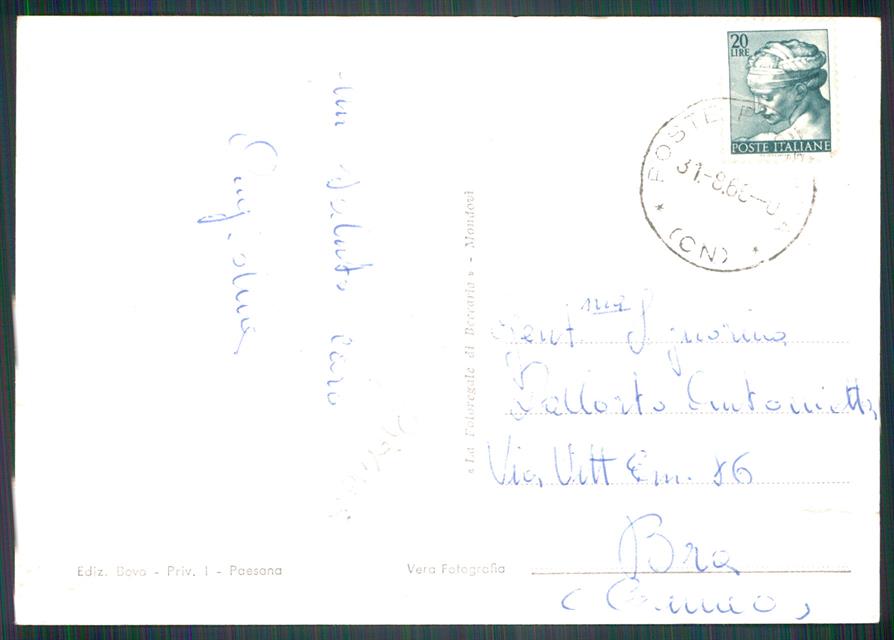 Un saluto caro
20
LIRE
POSTE ITALIANE
POSTE P
31.-8.66
(CN)
« La Fotoregale di Beccaria » - Mondovì
Gent.ma Signorina
Dallorto Antonietta
Via Vitt Em. 86
Bra
(Cuneo)
Ediz. Bovo - Priv. 1 - Paesana
Vera Fotografia